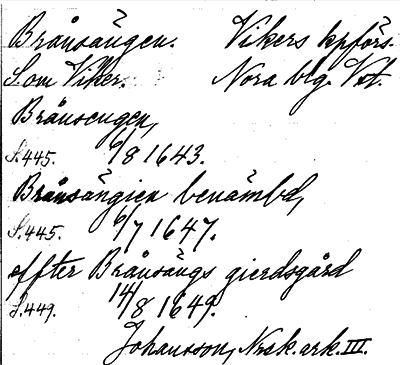 Brånsängen. Vikers kpförs.
S. om Viker. Nora blg. Vst.
Brånsengen,
S.445. 6/8 1643.
Brånsängien benämbd,
S.445. 6/7 1647.
effter Brånsängs gierdsgård
S.449. 14/8 1649.
Johansson, Nsk. ark. III.